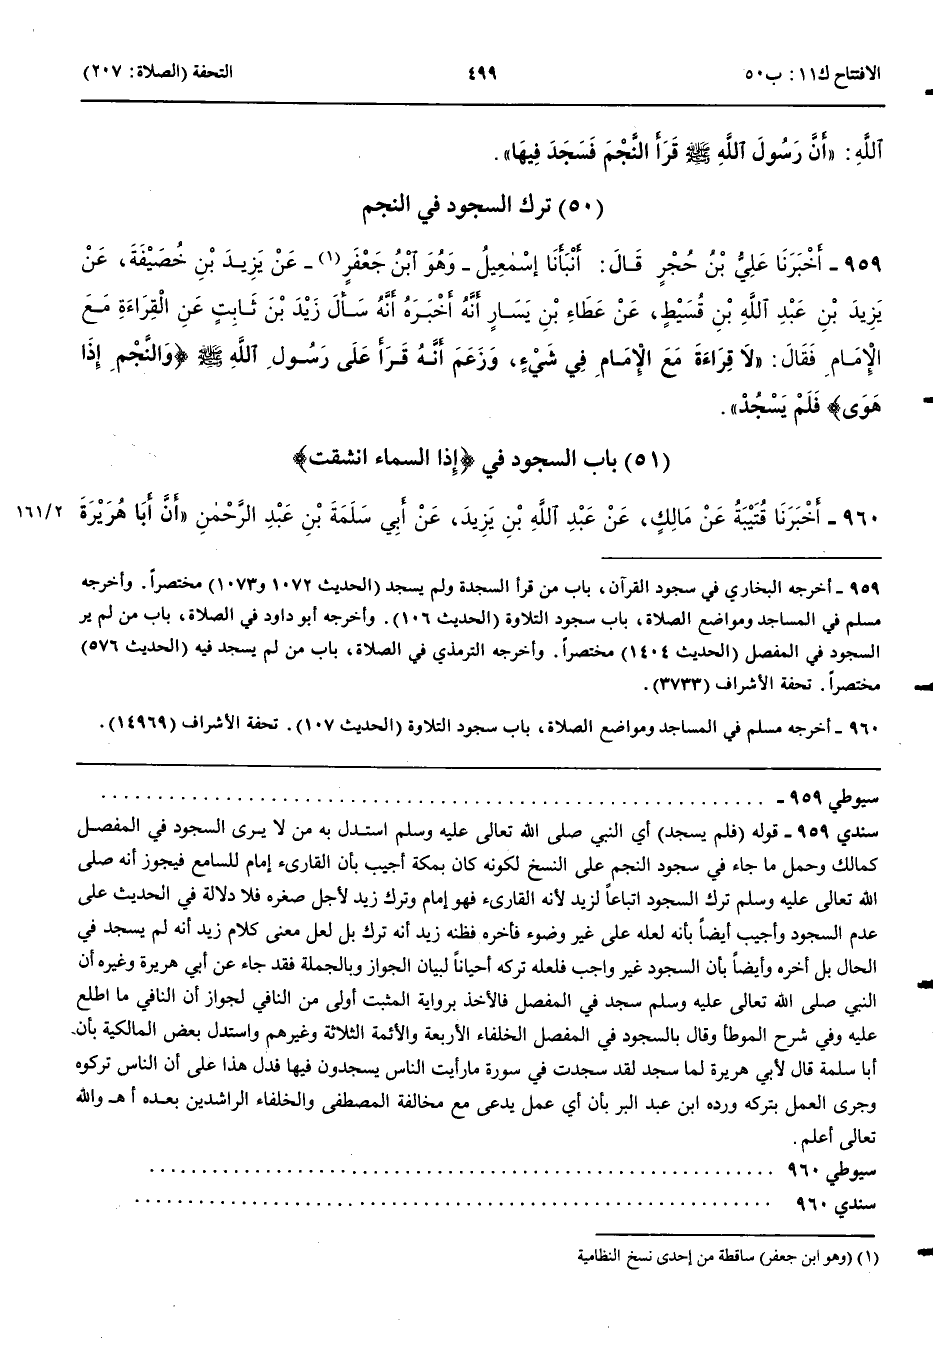 الافتتاح ك١١: ب٥٠ ٤٩٩ التحفة (الصلاة: ٢٠٧)
ٱللَّهِ: «أَنَّ رَسُولَ ٱللَّهِ ﷺ قَرَأَ النَّجْمَ فَسَجَدَ فِيهَا».
(٥٠) ترك السجود في النجم
٩٥٩ ـ أَخْبَرَنَا عَلِيُّ بْنُ حُجْرٍ قَالَ: أَنْبَأَنَا إِسْمٰعِيلُ ـ وَهُوَ ٱبْنُ جَعْفَرٍ(١) ـ عَنْ يَزِيدَ بْنِ خُصَيْفَةَ، عَنْ
يَزِيدَ بْنِ عَبْدِ ٱللَّهِ بْنِ قُسَيْطٍ، عَنْ عَطَاءِ بْنِ يَسَارٍ أَنَّهُ أَخْبَرَهُ أَنَّهُ سَأَلَ زَيْدَ بْنَ ثَابِتٍ عَنِ الْقِرَاءَةِ مَعَ
الْإِمَامِ فَقَالَ: «لَا قِرَاءَةَ مَعَ الْإِمَامِ فِي شَيْءٍ، وَزَعَمَ أَنَّهُ قَرَأَ عَلَى رَسُولِ ٱللَّهِ ﷺ ﴿وَالنَّجْمِ إِذَا
هَوَى﴾ فَلَمْ يَسْجُدْ».
(٥١) باب السجود في ﴿إذا السماء انشقت﴾
٩٦٠ ـ أَخْبَرَنَا قُتَيْبَةُ عَنْ مَالِكٍ، عَنْ عَبْدِ ٱللَّهِ بْنِ يَزِيدَ، عَنْ أَبِي سَلَمَةَ بْنِ عَبْدِ الرَّحْمٰنِ «أَنَّ أَبَا هُرَيْرَةَ ١٦١/٢
٩٥٩ ـ أخرجه البخاري في سجود القرآن، باب من قرأ السجدة ولم يسجد (الحديث ١٠٧٢ و١٠٧٣) مختصراً. وأخرجه
مسلم في المساجد ومواضع الصلاة، باب سجود التلاوة (الحديث ١٠٦). وأخرجه أبو داود في الصلاة، باب من لم ير
السجود في المفصل (الحديث ١٤٠٤) مختصراً. وأخرجه الترمذي في الصلاة، باب من لم يسجد فيه (الحديث ٥٧٦)
مختصراً. تحفة الأشراف (٣٧٣٣).
٩٦٠ ـ أخرجه مسلم في المساجد ومواضع الصلاة، باب سجود التلاوة (الحديث ١٠٧). تحفة الأشراف (١٤٩٦٩).
سيوطي ٩٥٩ ـ ..........................................................
سندي ٩٥٩ ـ قوله (فلم يسجد) أي النبي صلى الله تعالى عليه وسلم استدل به من لا يرى السجود في المفصل
كمالك وحمل ما جاء في سجود النجم على النسخ لكونه كان بمكة أجيب بأن القارىء إمام للسامع فيجوز أنه صلى
الله تعالى عليه وسلم ترك السجود اتباعاً لزيد لأنه القارىء فهو إمام وترك زيد لأجل صغره فلا دلالة في الحديث على
عدم السجود وأجيب أيضاً بأنه لعله على غير وضوء فأخره فظنه زيد أنه ترك بل لعل معنى كلام زيد أنه لم يسجد في
الحال بل أخره وأيضاً بأن السجود غير واجب فلعله تركه أحياناً لبيان الجواز وبالجملة فقد جاء عن أبي هريرة وغيره أن
النبي صلى الله تعالى عليه وسلم سجد في المفصل فالأخذ برواية المثبت أولى من النافي لجواز أن النافي ما اطلع
عليه وفي شرح الموطأ وقال بالسجود في المفصل الخلفاء الأربعة والأئمة الثلاثة وغيرهم واستدل بعض المالكية بأن
أبا سلمة قال لأبي هريرة لما سجد لقد سجدت في سورة مارأيت الناس يسجدون فيها فدل هذا على أن الناس تركوه
وجرى العمل بتركه ورده ابن عبد البر بأن أي عمل يدعى مع مخالفة المصطفى والخلفاء الراشدين بعده أ هـ والله
تعالى أعلم.
سيوطي ٩٦٠ ..........................................................
سندي ٩٦٠ ..........................................................
(١) (وهو ابن جعفر) ساقطة من إحدى نسخ النظامية